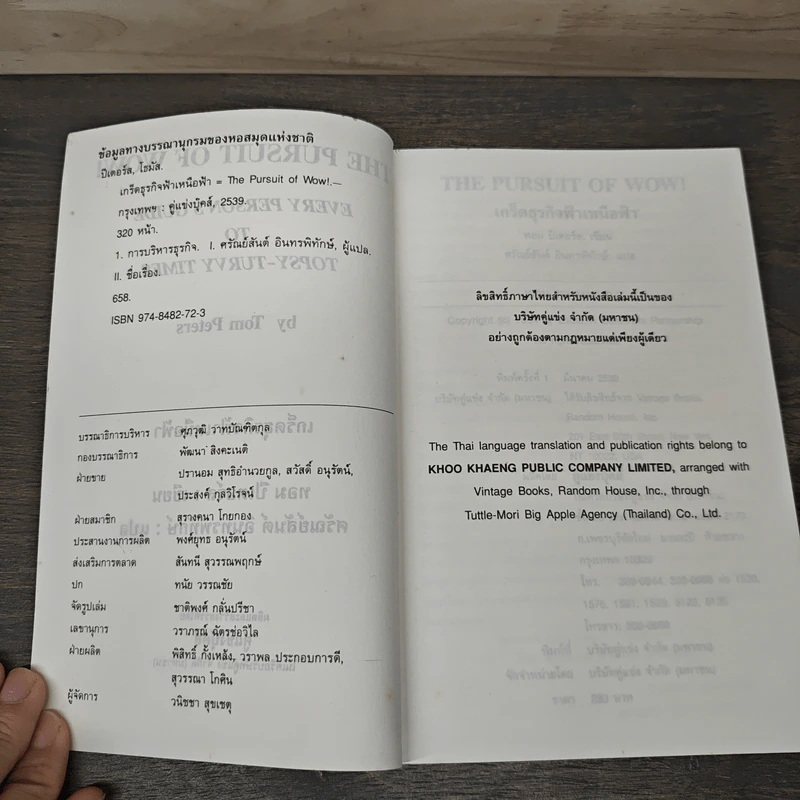 ข้อมูลทางบรรณานุกรมของหอสมุดแห่งชาติ
ปีเตอร์ส, โธมัส.
เกร็ดธุรกิจฟ้าเหนือฟ้า = The Pursuit of Wow!.—
กรุงเทพฯ : คู่แข่งบุ๊คส์, 2539.
320 หน้า.
1. การบริหารธุรกิจ. I. ศรัณย์สันต์ อินทรพิทักษ์, ผู้แปล.
II. ชื่อเรื่อง.
658.
ISBN 974-8482-72-3
บรรณาธิการบริหาร ศุภวุฒิ วาทบัณฑิตกุล
กองบรรณาธิการ พัฒนา สิงคะเนติ
ฝ่ายขาย ปรานอม สุทธิอำนวยกูล, สวัสดิ์ อนุรัตน์,
ประสงค์ กุลวิโรจน์
ฝ่ายสมาชิก สุรางคนา โกยกอง
ประสานงานการผลิต พงศ์ยุทธ อนุรัตน์
ส่งเสริมการตลาด สันทนี สุวรรณพฤกษ์
ปก ทนัย วรรณชัย
จัดรูปเล่ม ชาติพงศ์ กลั่นปรีชา
เลขานุการ วราภรณ์ ฉัตรช่อวิไล
ฝ่ายผลิต พิสิทธิ์ กั้งเหลัง, วราพล ประกอบการดี,
สุวรรณา โกศิน
ผู้จัดการ วนิชชา สุขเชตุ
ลิขสิทธิ์ภาษาไทยสำหรับหนังสือเล่มนี้เป็นของ
บริษัทคู่แข่ง จำกัด (มหาชน)
อย่างถูกต้องตามกฎหมายแต่เพียงผู้เดียว
The Thai language translation and publication rights belong to
KHOO KHAENG PUBLIC COMPANY LIMITED, arranged with
Vintage Books, Random House, Inc., through
Tuttle-Mori Big Apple Agency (Thailand) Co., Ltd.